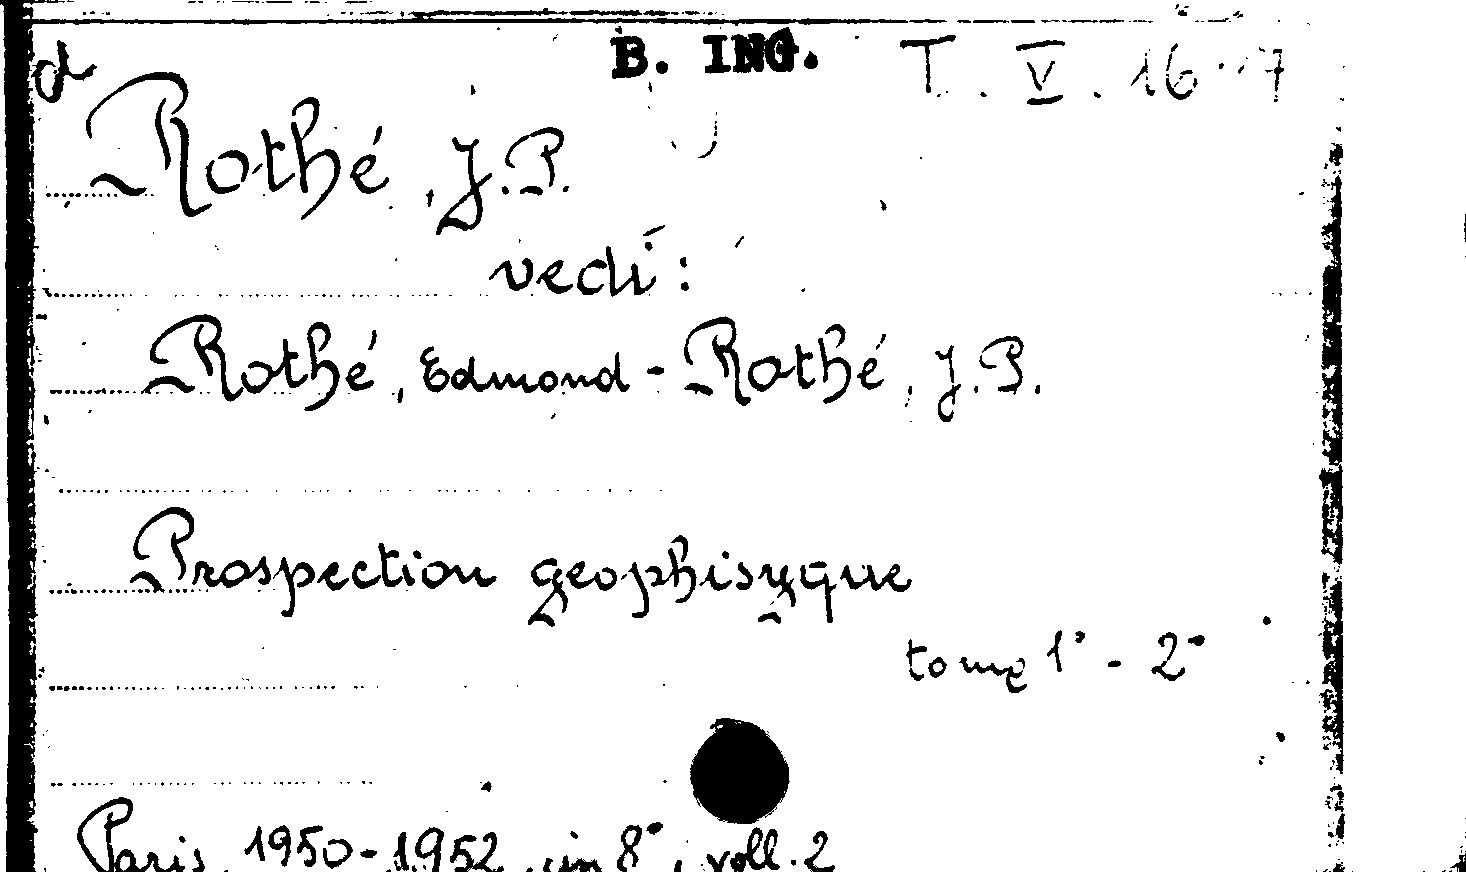 d B. ING. T. V. 16.-7
Rothé, J.P.
vedi:
Rothé, Edmond - Rothé, J.P.
Prospection geophisyque
tome 1° - 2°
Paris, 1950-1952, in 8°, voll. 2